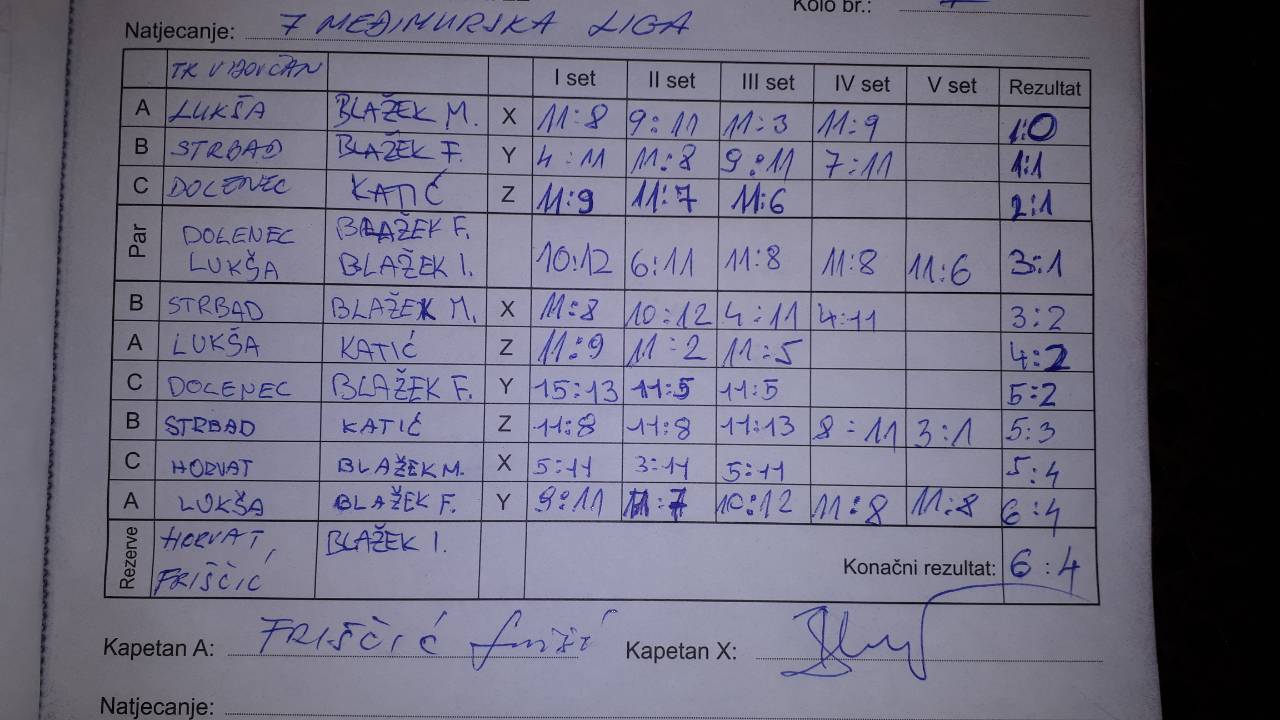 Kolo br.:
Natjecanje: 7 MEĐIMURSKA LIGA
TK VIDOVČAN I set II set III set IV set V set Rezultat
A LUKŠA BLAŽEK M. X 11:8 9:11 11:3 11:9 1:0
B STRBAD BLAŽEK F. Y 4:11 11:8 9:11 7:11 1:1
C DOLENEC KATIĆ Z 11:9 11:7 11:6 2:1
Par DOLENEC BLAŽEK F.
LUKŠA BLAŽEK I. 10:12 6:11 11:8 11:8 11:6 3:1
B STRBAD BLAŽEK M. X 11:8 10:12 4:11 4:11 3:2
A LUKŠA KATIĆ Z 11:9 11:2 11:5 4:2
C DOLENEC BLAŽEK F. Y 15:13 11:5 11:5 5:2
B STRBAD KATIĆ Z 11:8 11:8 11:13 8:11 3:1 5:3
C HORVAT BLAŽEK M. X 5:11 3:11 5:11 5:4
A LUKŠA BLAŽEK F. Y 9:11 11:7 10:12 11:8 11:8 6:4
Rezerve HORVAT, BLAŽEK I.
FRIŠČIĆ Konačni rezultat: 6:4
Kapetan A: FRIŠČIĆ Kapetan X:
Natjecanje: